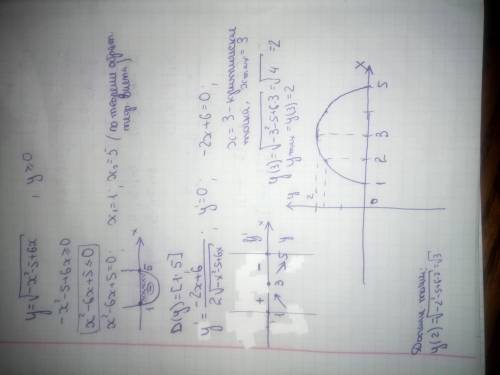 y=√-x²-5+6x , y≥0
-x²-5+6x≥0
x²-6x+5≤0
x²-6x+5=0; x₁=1; x₂=5 (по теореме обрат.
теор Виета)
1 5 x
D(y)=[1;5]
y'=-2x+6/2√-x²-5+6x; y'=0; -2x+6=0;
x=3-критические
точка, xmax=3
+ - y'
1 3 5 y x
y(3)=√-3²-5+6·3=√4=2
ymax=y(3)=2
y
2
0 1 2 3 5 x
точки:
y(2)=√-2²-5+6·2=√3